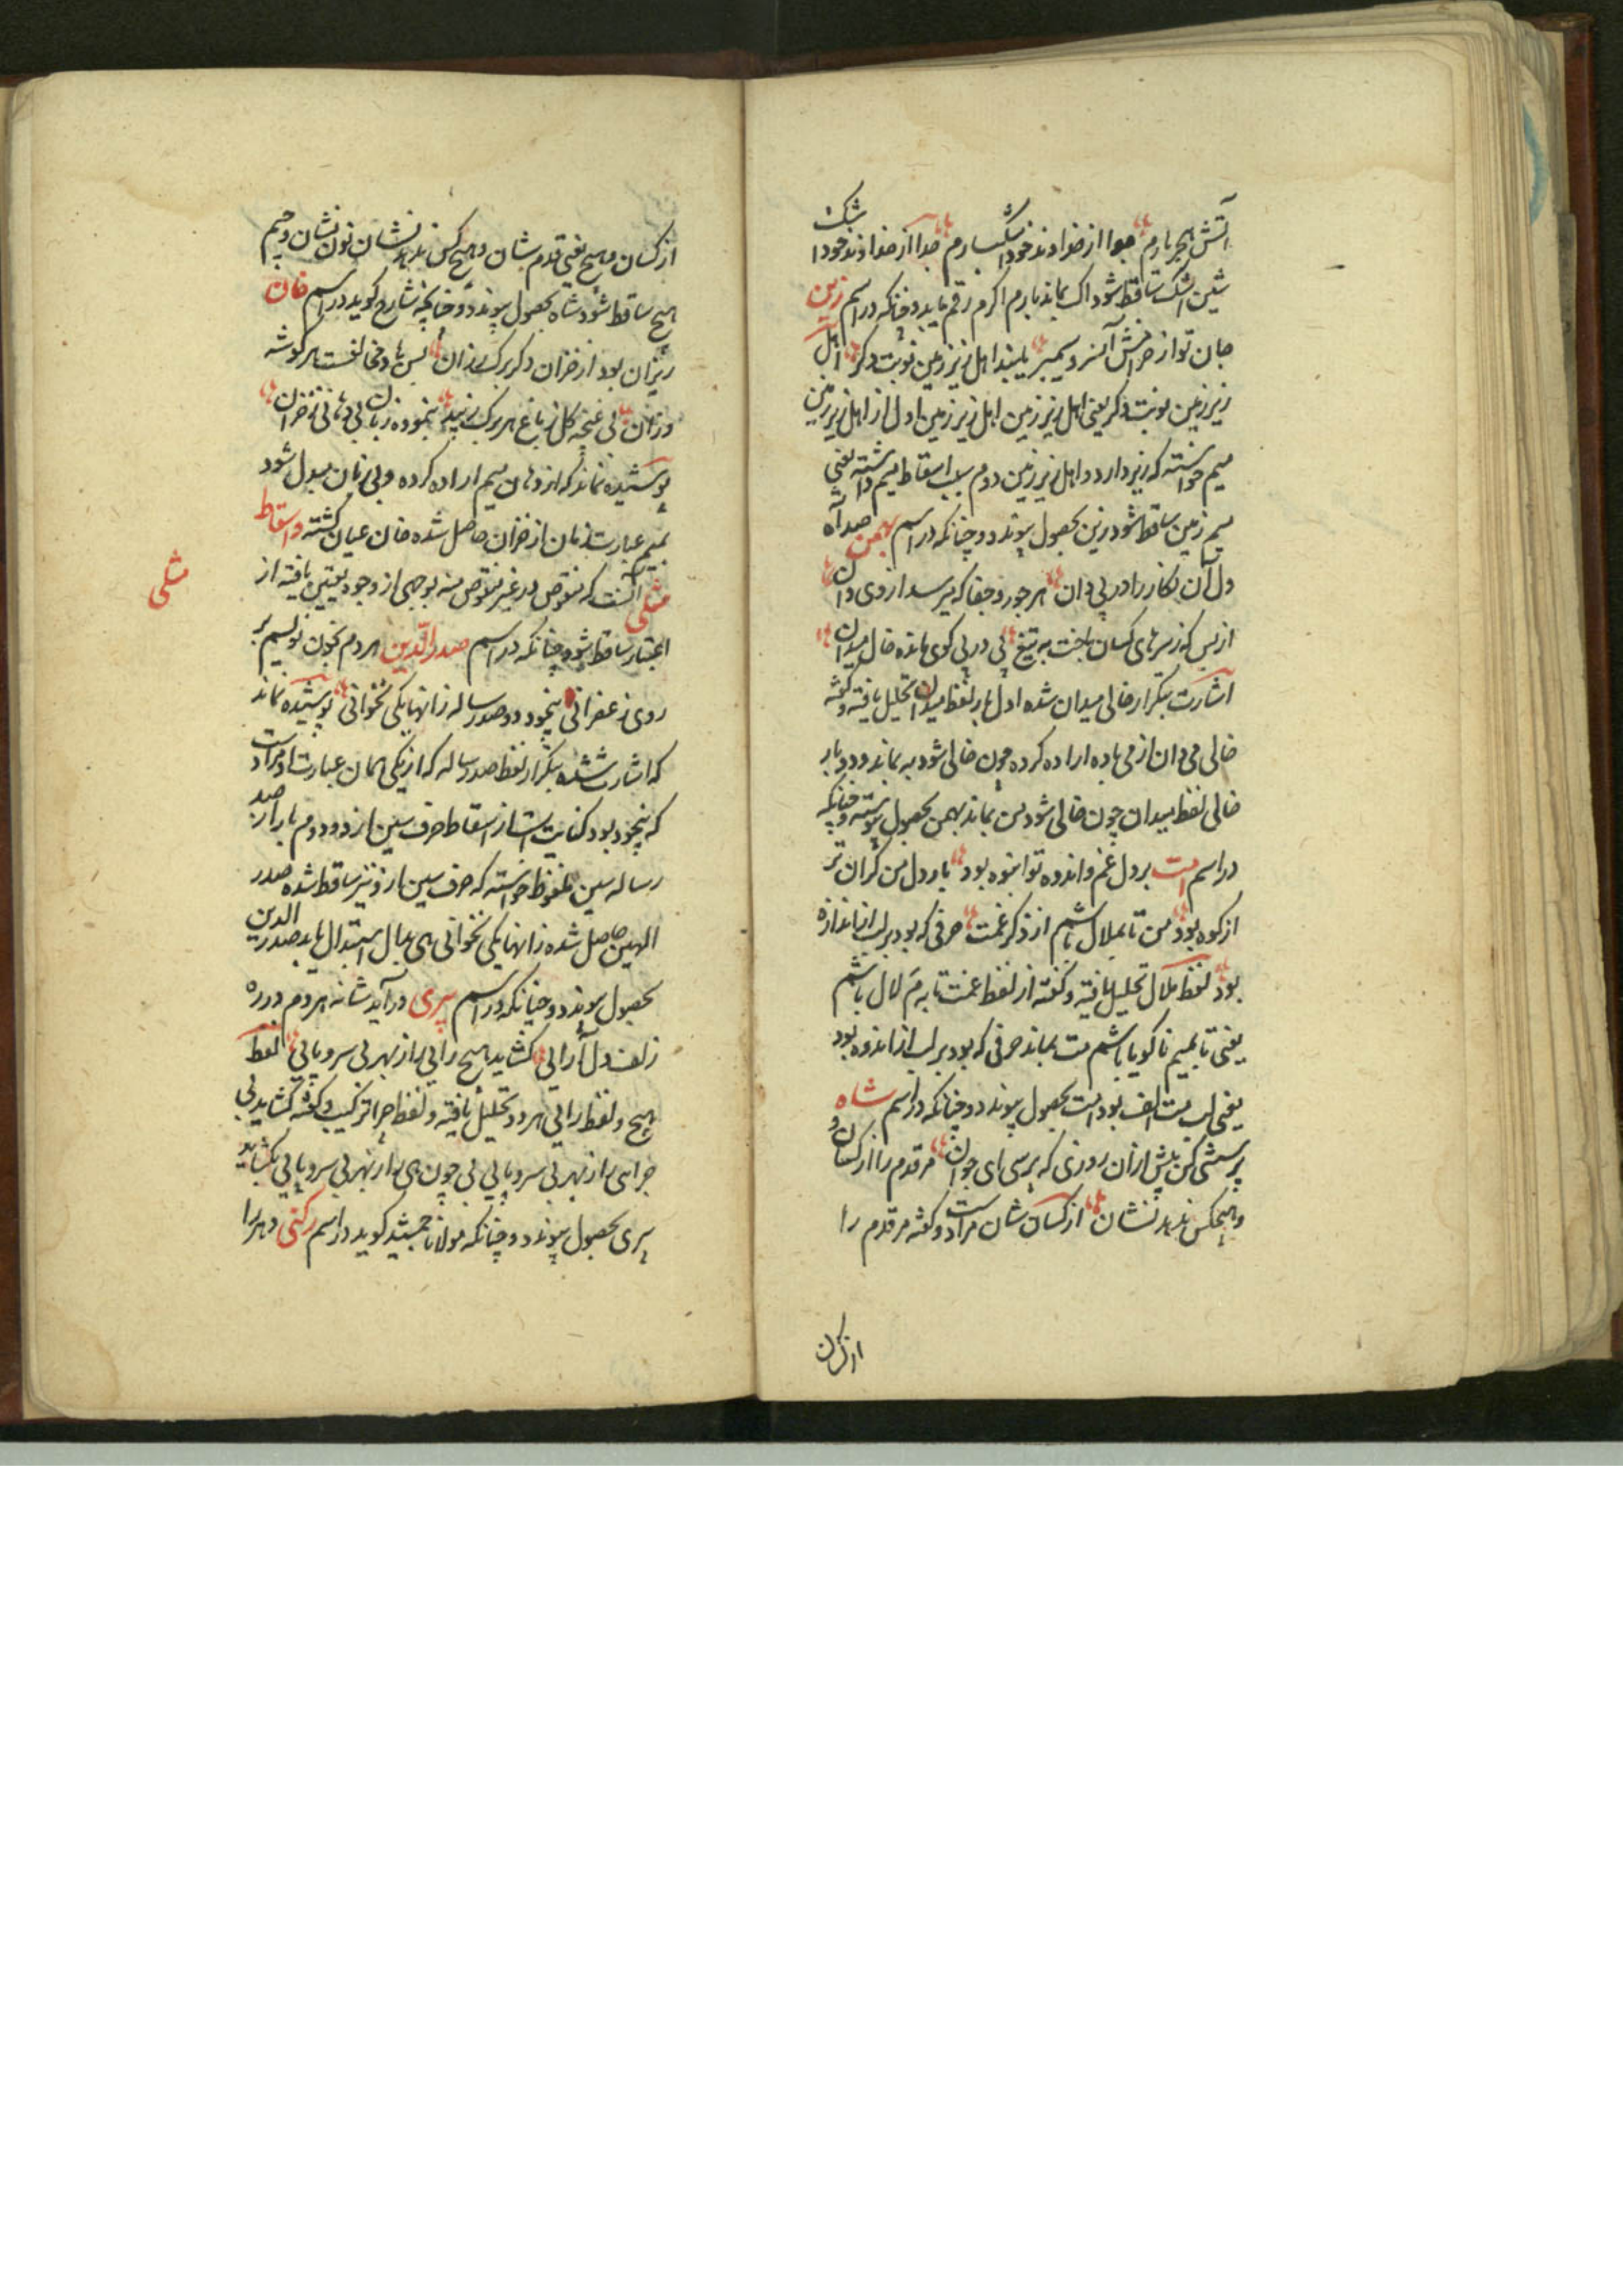 آتش هجر بارم جدا از خداوند خود اشکبارم جدا از خداوند خود اشک
شین اشک ساقط شود اک بماند بارم اکرم رقم یابد و چنانکه در اسم زین
جان تو از خراش آن سیمبر بلبند اهل زیر زمین نوبت دکر اهل
زیر زمین نوبت دکر یعنی اهل زیر زمین اهل زیر زمین اول از اهل زیر زمین
میم خواسته که زیر دارد و اهل زیر زمین دوم سبب اسقاط میم داشته یعنی
میم زمین ساقط شود زین بحصول پیوندد و چنانکه در اسم بهمن صد آه
دل آن نکار را در پی دان هر جور و جفا که میرسد از وی دان
از بس که ز سرهای کسان باخت به تیغ بی در پی کوی مانده خال میدان
اشارت بتکرار خالی میدان شده اول بار لفظ میدان تحلیل یافته و کفته
خالی می دان از می باده اراده کرده چون خالی شود به بماند و دوم بار
خالی لفظ میدان چون خالی شود من بماند بهمن بحصول پیوسته و چنانکه
در اسم است بر دل غم و اندوه تو انبوه بود بار دل من کران تر
از کوه بود من تا بملال باشم از ذکر غمت حرفی که بود بر لب از اندازه
بود لفظ ملال تحلیل یافته و کفته از لفظ غمت تا به م لال باشم
یعنی تا بمیم ناکویا باشم مت بماند حرفی که بود بر لب از اندوه بود
یعنی لب مت الف بود امت بحصول پیوندد و چنانکه در اسم شاه
پرسشی کن پیش از آن روزی که پرسی ای جوان مر قدم را از کسان و
و هیچکس ندهد نشان از کسان شان مراد است و کفته مر قدم را
از کسان
از کسان و هیچ یعنی قدم شان و هیچ کس ندهد نشان نون نشان و جیم
هیچ ساقط شود شاه بحصول پیوندد و چنانچه شارح کوید در اسم خان
ریزان بود از خزان دکر برک رزان پس باد مخالفست هر کوشه
وزان بی غنچه کل ز باغ هر برک بنموده زبان بی دهانی ز خزان
پوشیده نماند که از دهان میم اراده کرده و بی زبان مبدل شود
بمیم عبارت زبان از خزان حاصل شده خان عیان کشته و اسقاط
مثلی آنست که منقوص در غیر منقوص منه بوجهی از وجوه تعیین یافته از
مثلی
اعتبار ساقط شود چنانکه در اسم صدرالدین هر دم بخون نویسم بر
روی زعفرانی بیخود دو صد رساله زانها یکی نخوانی پوشیده نماند
که اشارت شده بتکرار لفظ صد رساله که از یکی همان عبارت او مراد است
که بیخود بود کنایت است از اسقاط حرف سین از دو و دوم بار از صد
رساله سین ملفوظ خواسته که حرف سین از و نیز ساقط شده صدر
الهین حاصل شده زانها یکی نخوانی های بدال استبدال یابد صدر الدین
بحصول پیوندد و چنانکه در اسم پیری در آید شانه هر دم در ره
زلف دل آرایی کشاید هیچ رایی را ز بهر بی سر و پایی لفظ
هیچ و لفظ رایی هر دو تحلیل یافته و لفظ چرا ترکیب و کفته کشاید بی
چرا یی را ز بهر بی سر و پایی بی چون ی را ز بهر بی سر و پایی بکشاید
پیری بحصول پیوندد و چنانکه مولانا جمشید کوید در اسم رکنی دهر را